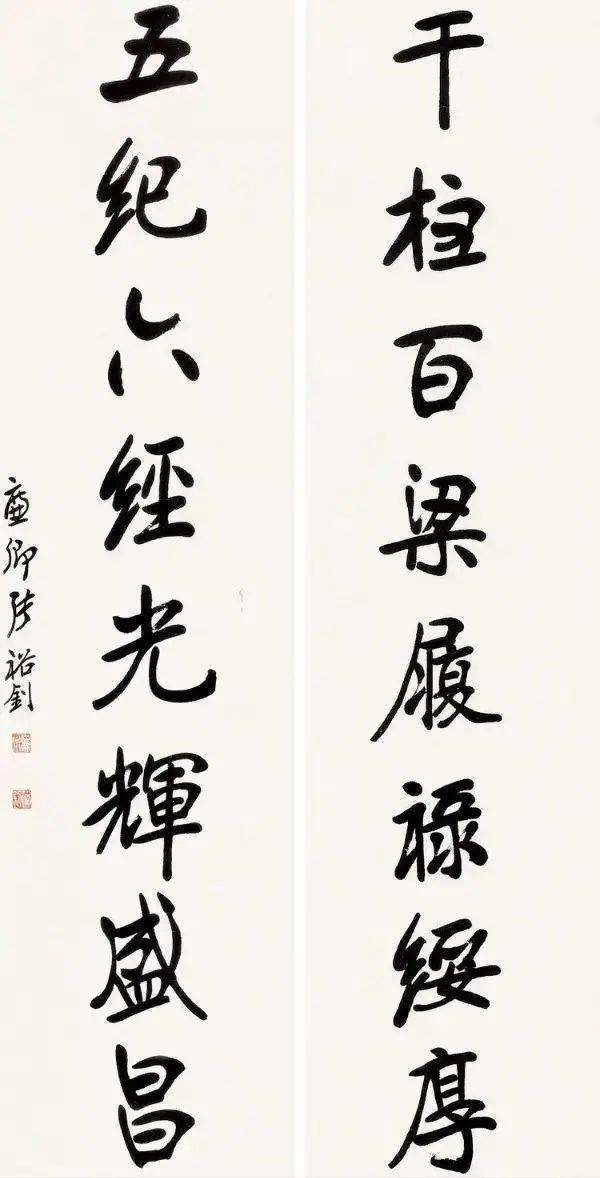 千柱百梁履禄綏厚
五紀六經光輝盛昌
廉卿張裕釗